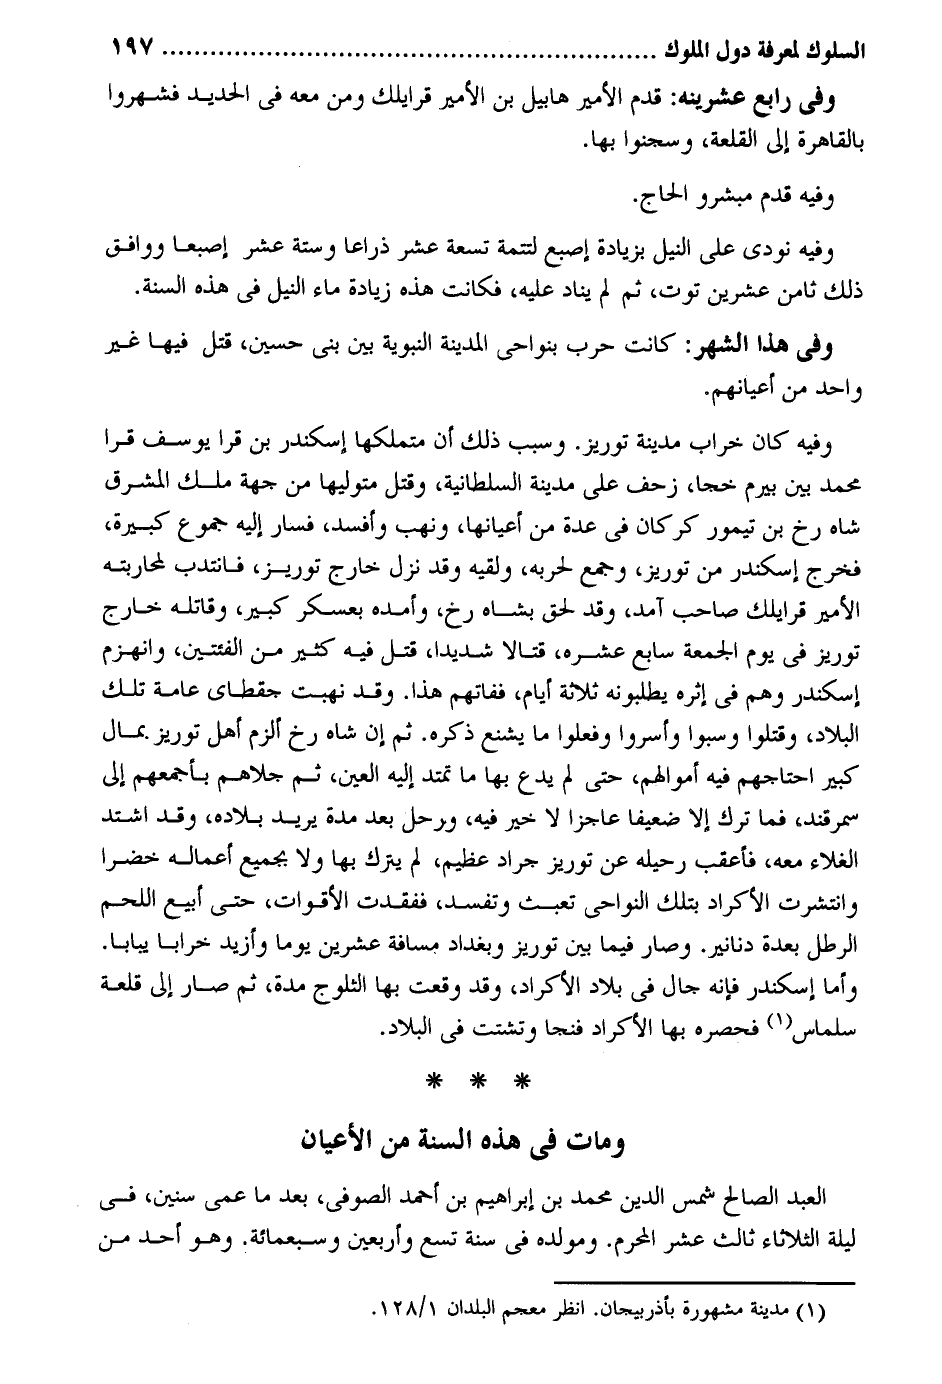 السلوك لمعرفة دول الملوك ............................................................ ١٩٧
وفى رابع عشرينه: قدم الأمير هابيل بن الأمير قرايلك ومن معه فى الحديد فشهروا
بالقاهرة إلى القلعة، وسجنوا بها.
وفيه قدم مبشرو الحاج.
وفيه نودى على النيل بزيادة إصبع لتتمة تسعة عشر ذراعا وستة عشر إصبعا ووافق
ذلك ثامن عشرين توت، ثم لم يناد عليه، فكانت هذه زيادة ماء النيل فى هذه السنة.
وفى هذا الشهر: كانت حرب بنواحى المدينة النبوية بين بنى حسين، قتل فيها غير
واحد من أعيانهم.
وفيه كان خراب مدينة توريز. وسبب ذلك أن متملكها إسكندر بن قرا يوسف قرا
محمد بين بيرم خجا، زحف على مدينة السلطانية، وقتل متوليها من جهة ملك المشرق
شاه رخ بن تيمور كركان فى عدة من أعيانها، ونهب وأفسد، فسار إليه جموع كبيرة،
فخرج إسكندر من توريز، وجمع لحربه، ولقيه وقد نزل خارج توريز، فانتدب لمحاربته
الأمير قرايلك صاحب آمد، وقد لحق بشاه رخ، وأمده بعسكر كبير، وقاتله خارج
توريز فى يوم الجمعة سابع عشره، قتالا شديدا، قتل فيه كثير من الفئتين، وانهزم
إسكندر وهم فى إثره يطلبونه ثلاثة أيام، ففاتهم هذا. وقد نهبت جقطاى عامة تلك
البلاد، وقتلوا وسبوا وأسروا وفعلوا ما يشنع ذكره. ثم إن شاه رخ ألزم أهل توريز بمال
كبير احتاجهم فيه أموالهم، حتى لم يدع بها ما تمتد إليه العين، ثم جلاهم بأجمعهم إلى
سمرقند، فما ترك إلا ضعيفا عاجزا لا خير فيه، ورحل بعد مدة يريد بلاده، وقد اشتد
الغلاء معه، فأعقب رحيله عن توريز جراد عظيم، لم يترك بها ولا بجميع أعماله خضرا
وانتشرت الأكراد بتلك النواحى تعبث وتفسد، ففقدت الأقوات، حتى أبيع اللحم
الرطل بعدة دنانير. وصار فيما بين توريز وبغداد مسافة عشرين يوما وأزيد خرابا يبابا.
وأما إسكندر فإنه جال فى بلاد الأكراد، وقد وقعت بها الثلوج مدة، ثم صار إلى قلعة
سلماس(١) فحصره بها الأكراد فنجا وتشتت فى البلاد.
* * *
ومات فى هذه السنة من الأعيان
العبد الصالح شمس الدين محمد بن إبراهيم بن أحمد الصوفى، بعد ما عمى سنين، فى
ليلة الثلاثاء ثالث عشر المحرم. ومولده فى سنة تسع وأربعين وسبعمائة. وهو أحد من
(١) مدينة مشهورة بأذربيجان. انظر معجم البلدان ١٢٨/١.